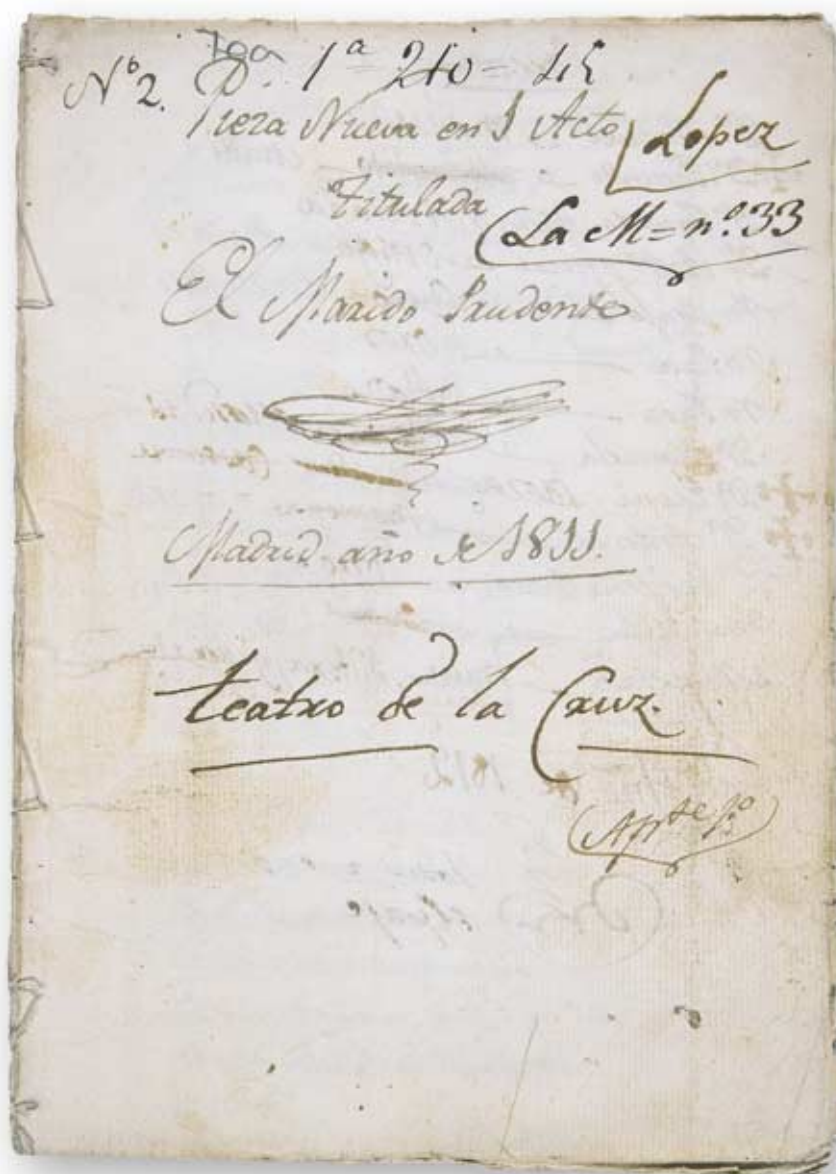 Nº 2. 1ª 210=
Pieza Nueva en 1 Acto
Lopez
Titulada
La M= nº. 33
El Marido Prudente
Madrid año de 1811.
teatro de la Cruz.
Apte 1º